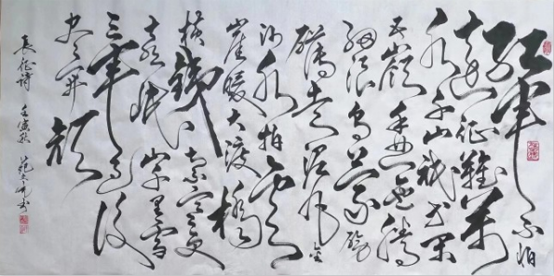 红軍不怕
远征難萬
水千山只等闲
五嶺逶迤腾
细浪乌蒙磅
礴走泥丸金
沙水拍云
崖暖大渡橋
横铁索寒更
喜岷山千里雪
三軍过後
尽开颜
長征诗 壬寅秋 范 书